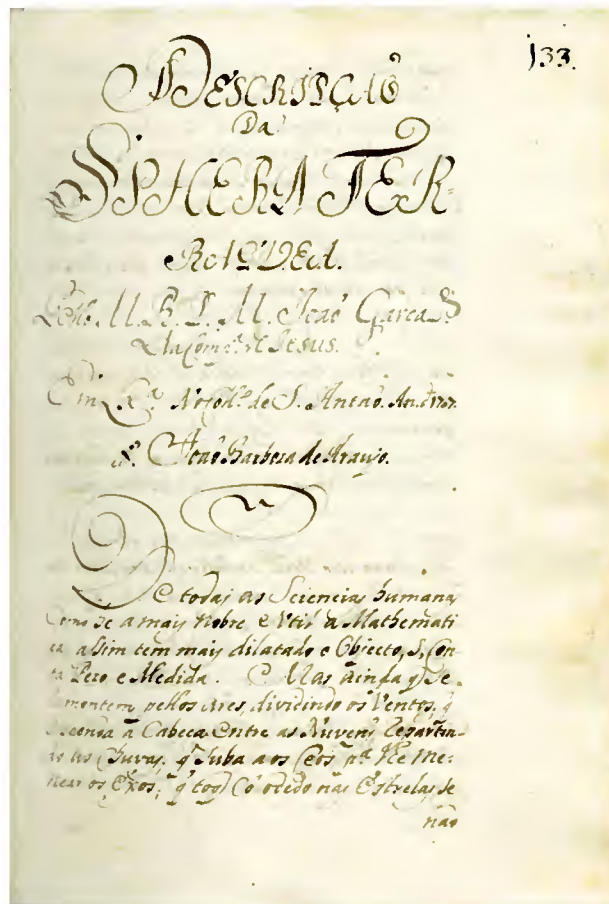 133.
DESCRIPÇAÕ
Da
SPHERA TER-
Pello M. R. P. M. Joaõ Garçaõ
Da Comp.ª de Jesus.
Em Lx.ª No Coll.º de S. Antaõ. An. d 1707.
Joaõ Barboza de Araujo.
De todas as Sciencias humanas
Como he a mais Nobre, e Util a Mathemati
ca assim tem mais dilatado o Objecto, s, Con-
ta Pezo e Medida. Mas ainda q̃ se
montem pellos Ares, dividindo os Ventos, q̃
a Cabeça Entre as Nuvens
as Chuvas, q̃ suba aos Ceos p.ª lhe me-
near os Eixos, q̃ toq̃ Có o dedo nas Estrelas, se
naõ